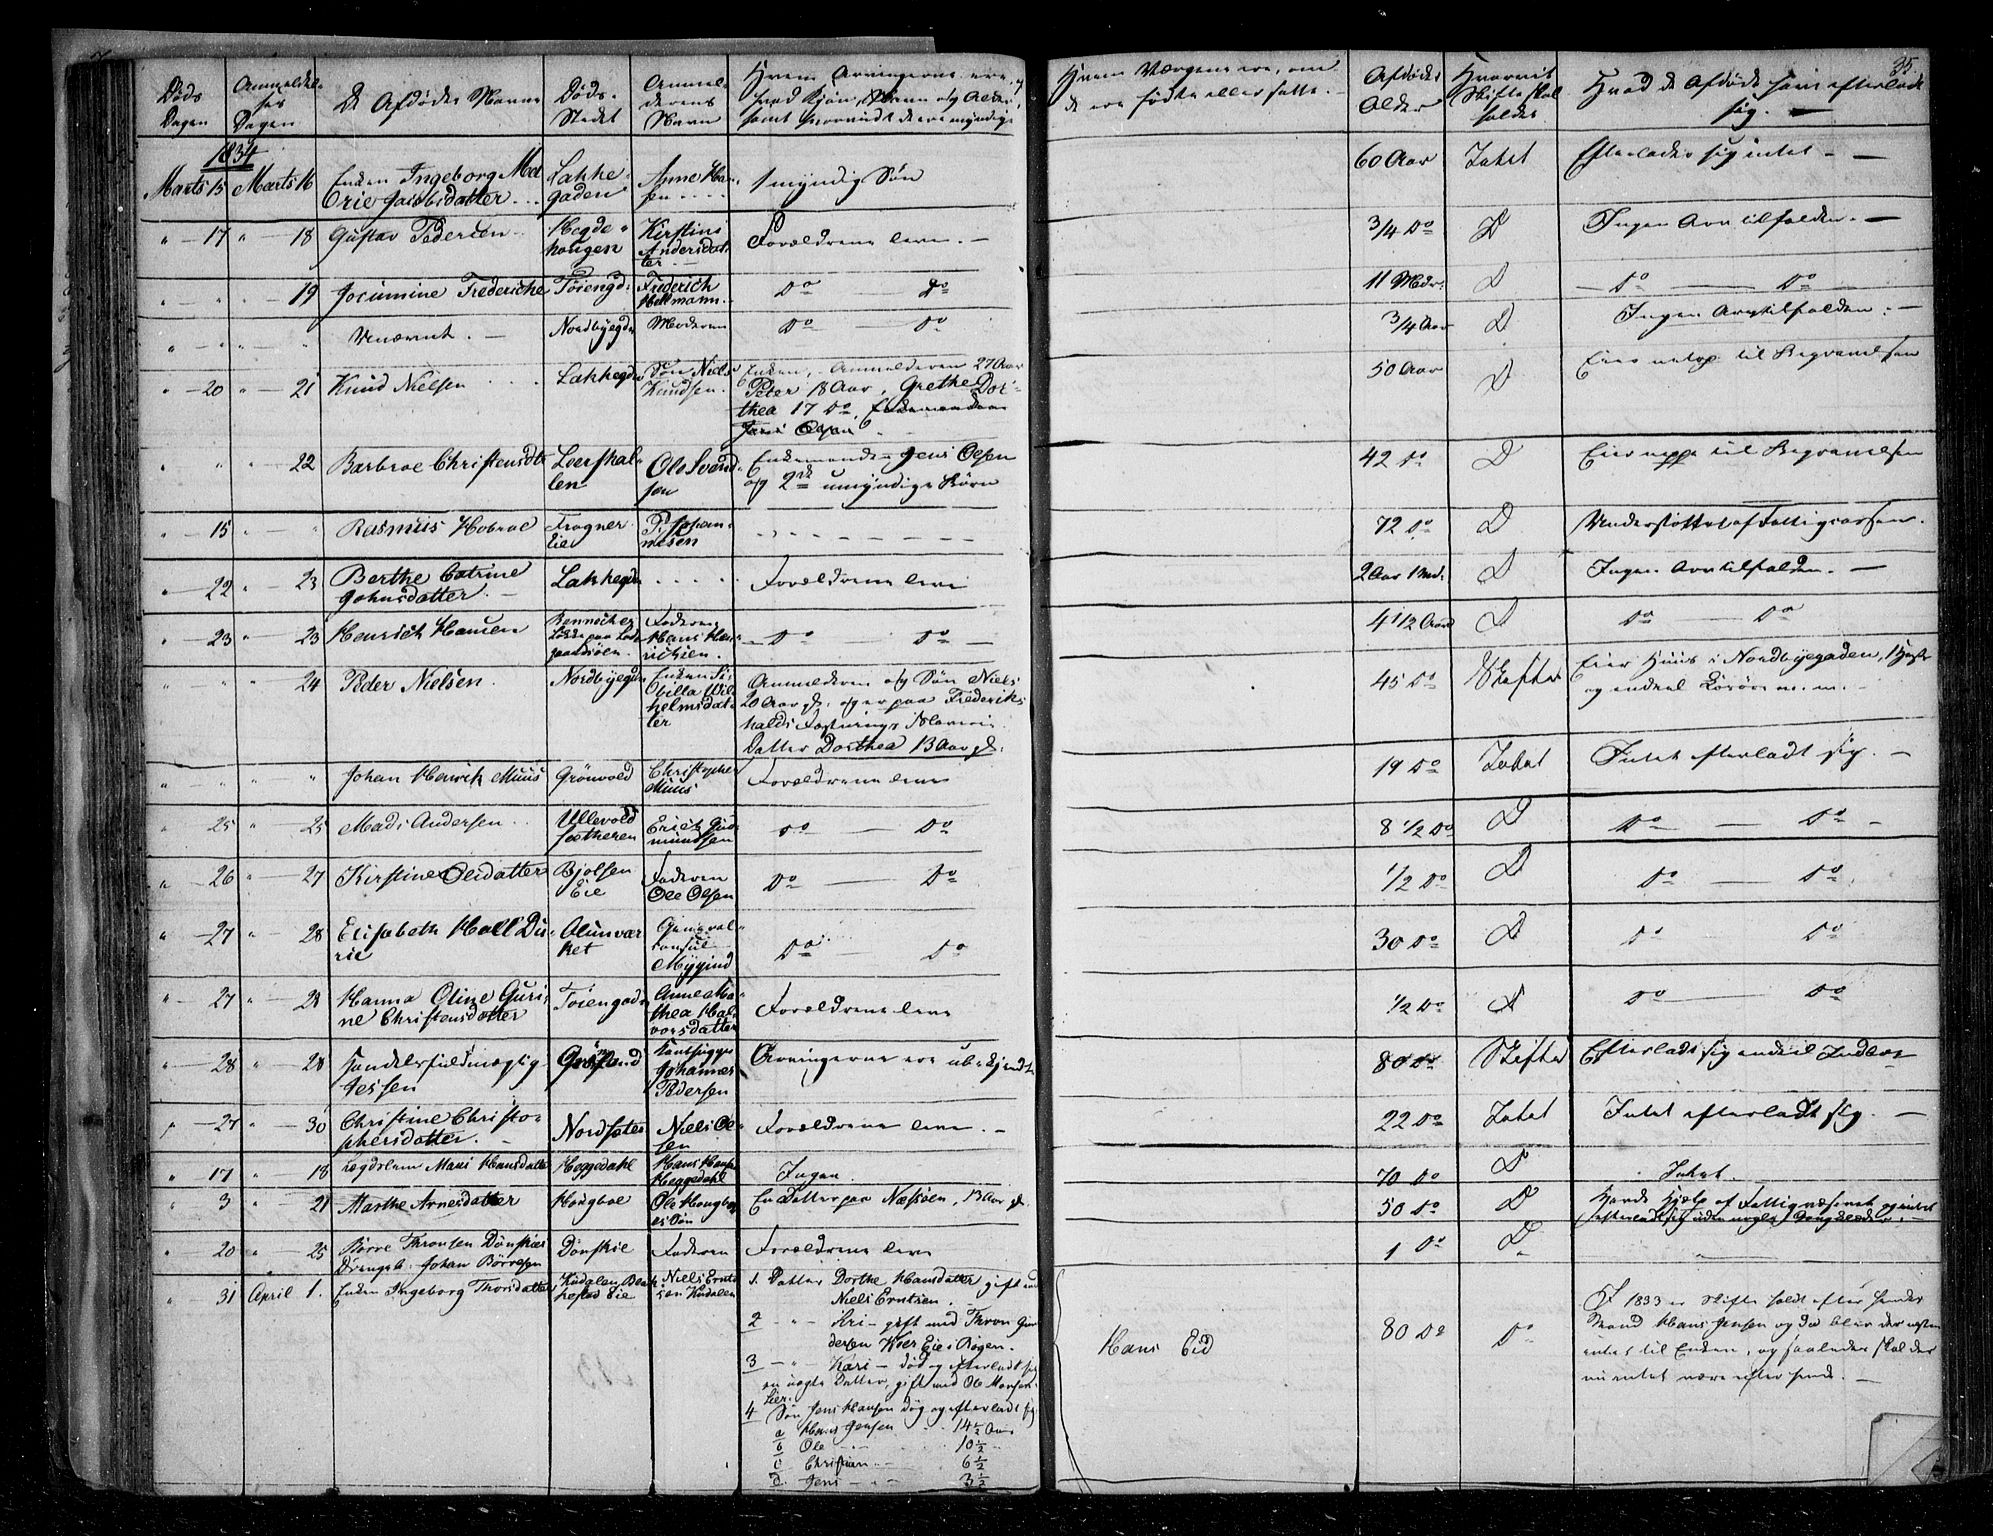 35.
Døds Dagen | Anmeldelses Dagen | De Afdødes Navne | Døds-Stedet | Anmelderens Navn | Hvem Arvingerne ere, hvad Kjøn, Navn og Alder, samt hvorvidt de ere myndige | Hvem Værgene ere, om de ere fødte eller satte. | Afdødes Alder | Hvorvidt Skifte skal holdes | Hvad de Afdøde have efterladt sig.
1834
Marts 15 | Marts 16 | Enken Ingeborg Marie Jacobsdatter | Lakkegaden | Anne Hansen | 1 myndig Søn | 60 Aar | Intet | Efterlader sig intet
" 17 | " 18 | Gustav Pedersen | Hegdehougen | Kirstine Andersdatter | Forældrene leve. | 3/4 Do | D | Ingen Arv tilfalden.
" " | " 19 | Jocumine Frederiche | Tøiengd. | Frederich Hellmann | Do Do | 11 Mdr. | D | Do Do
" " | " " | Unævnt. | Nordbyegd | Moderen | Do Do | 3/4 Aar | D | Ingen Arv tilfalden.
" 20 | " 21 | Knud Nielsen | Lakkegd | Søn Niels Knudsen. | Enken, Anmelderen 27 Aar
Peter 18 Aar, Grethe Dorthea 17 Do, Enkemanden
Jens Olsen | 50 Aar | D | Eier netop til Begravelsen
" " | " 22 | Barbroe Christensdtr | Leerskallen | Ole Svendsen | Enkemand Jens Olsen
og 2de umyndige Børn | 42 Do | D | Eier neppe til Begravelsen
" 15 | " " | Rasmus Hobroe | Frogner Eie | P. Johannesen | 72 Do | D | Understøttet af Fattigcassen.
" 22 | " 23 | Berthe Catrine Johnsdatter. | Lakkegd | Forældrene leve | 2 Aar 1 Md. | D | Ingen Arv tilfalden.
" 23 | " 23 | Henrich Hansen | Løkke paa | Faderen Hans Henrichsen. | Do Do | 4 1/2 Aar | D | Do Do
" " | " 24 | Peder Nielsen. | Nordbyegd | Enken Sibilla Wilhelmsdatter | Anmelderen og Søn Niels
20 Aar gl. og er paa Frederikshalds Fæstnings Slaverie.
Datter Dorthea 13 Aar gl. | 45 Do | Skiftes | Eier Huus i Nordbyegaden, 1 Hest
og endeel Løsøre m. m.
" " | " " | Johan Henrich Muus | Grønvold | Christopher Muus | Forældrene leve | 19 Do | Intet | Intet efterladt sig.
" 25 | " 25 | Mads Andersen | Ullevold sætheren | Erich Gudmundsen | Do Do | 8 1/2 Do | D | Do Do
" 26 | " 27 | Kirstine Olsdatter | Bjølsen Eie | Faderen Ole Olsen | Do Do | 1/2 Do | D | Do Do
" 27 | " 28 | Elisabeth Hall Durie | Alunværket | General-consul Mygind | Do Do | 30 Do | D | Do Do
" 27 | " 28 | Hanna Oline Gurine Christensdatter | Tøiengade | Anne Mathea Halvorsdatter | Forældrene leve | 1/2 Do | D | Do Do
" 28 | " 28 | Handelsfuldmægtig Jessen | Grønland | Johannes Pedersen | Arvingerne ere ubekjendte | 80 Do | Skiftes | Efterladt sig endeel Indboe
" 27 | " 30 | Christine Christophersdatter. | Nordsæter | Niels Olsen | Forældrene leve. | 22 Do | Intet | Intet efterladt sig.
" 17 | " 18 | Lægdslem Mari Hansdatter | Heggedahl | Hans Hansen Heggedahl | Ingen | 70 Do | D | Intet.
" 3 | " 21 | Marthe Arnesdatter | Hougboe | Ole | En Datter paa Næsøen, 13 Aar gl. | 50 Do | D | Havde Hjælp af Fattigvæsenet og intet
efterladt sig uden nogle Gangklæder.
" 20 | " 25 | Børre Thronsen Dønskies Drengeb. Johan Børresen | Dønskie | Faderen | Forældrene leve | 1 Do | D
" 31 | April 1. | Enken Ingeborg Thorsdatter | Kudalen Eie | Niels Erntsen Kudalen | 1. Datter Dorthe Hansdatter gift med
Niels Erntsen.
2 " " Kri - gift med Thron
Eie i Bogen.
3 " " Kari - død og efterladt sig
en ægte Datter, gift med Ole Hansen
Lier.
4 Søn Jens Hansen død og efterladt sig
a Hans Jensen 14 1/2 Aar
b Ole 10 1/2 "
c Christian 6 1/2
d. Jens 3 1/2 | Hans Eid | 80 Do | Do | I 1833 er Skifte holdt efter hendes
Mand Hans Jensen og da blev der næsten
intet til Enken, og saaledes skal der
nu intet være efter hende.